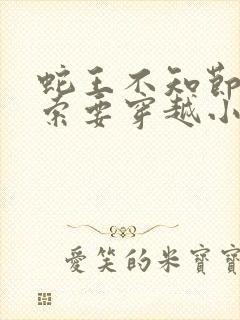 蛇王不知節
索要穿越小
愛笑的米寶寶